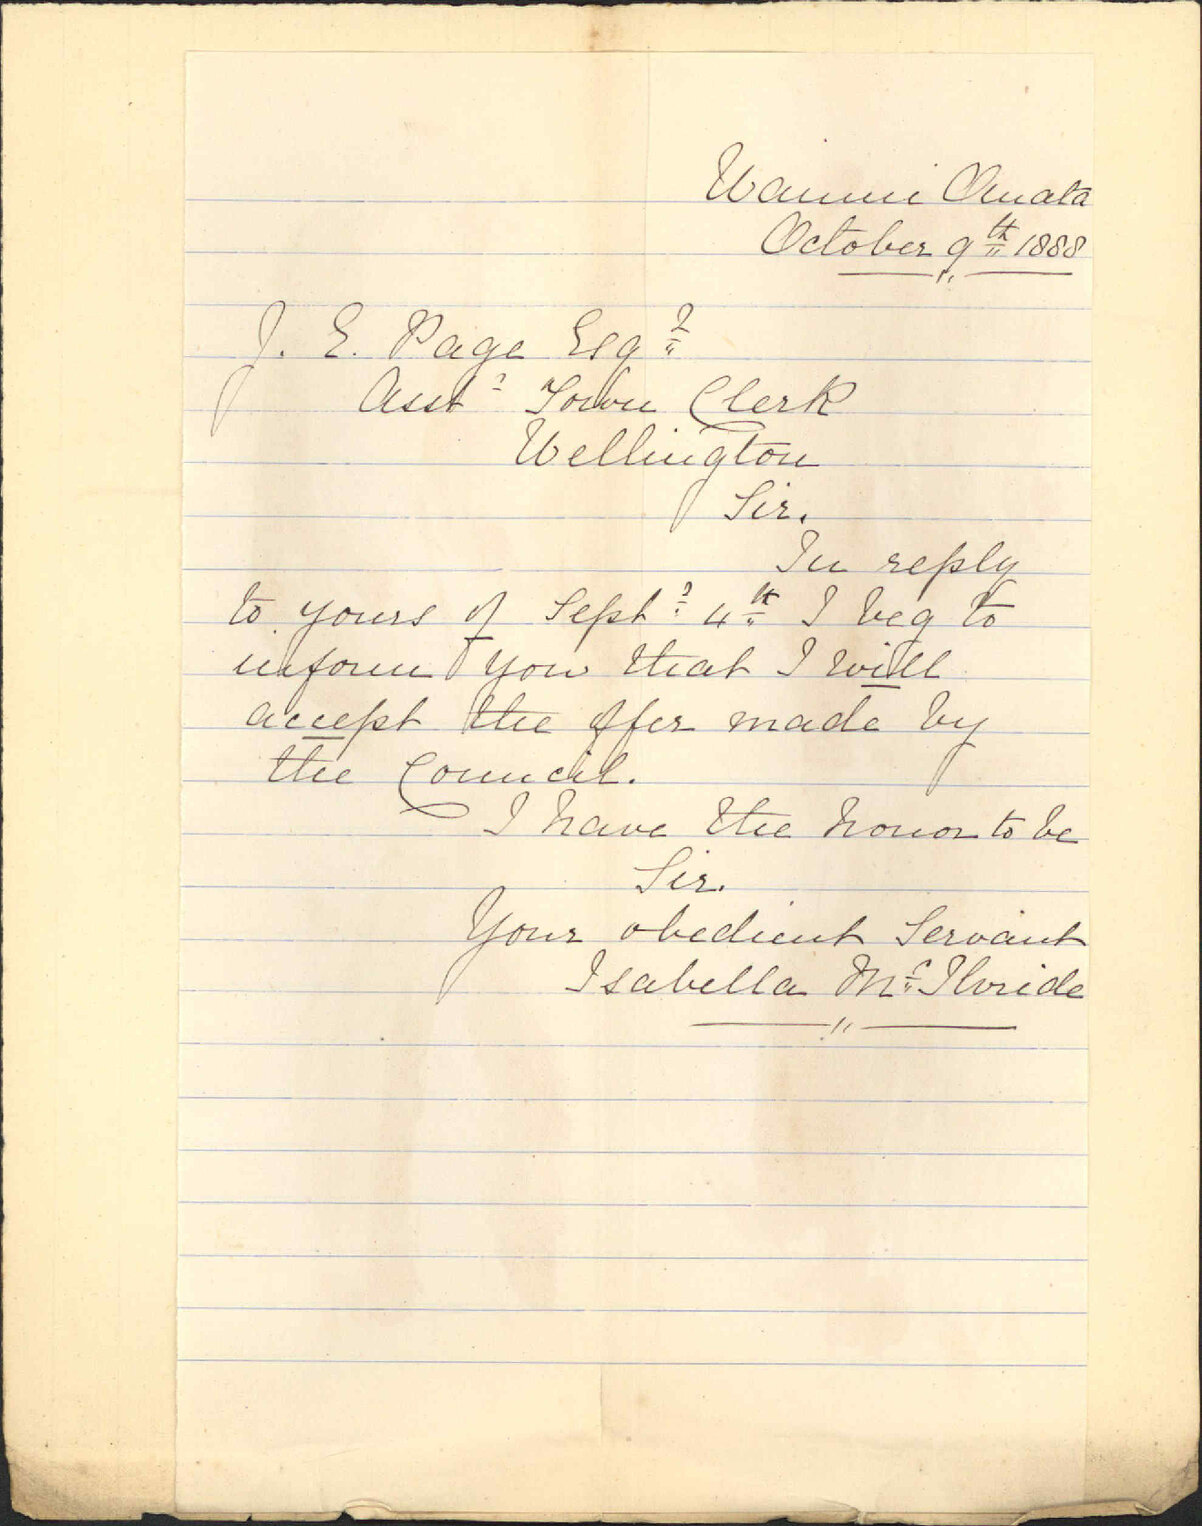 Wainui Omata
October 9th 1888
J. E. Page Esqr
Asst Town Clerk
Wellington
Sir.
In reply
to yours of Septr 4th I beg to
inform you that I will
accept the offer made by
the Council.
I have the honor to be
Sir.
Your obedient Servant
Isabella McIlvride